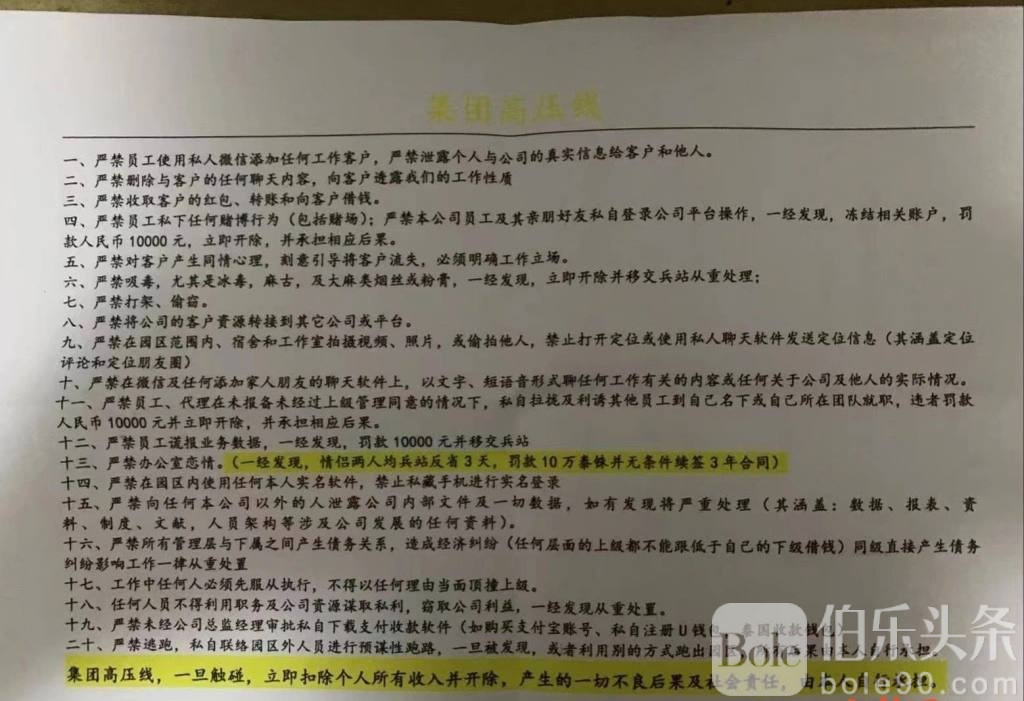 集团高压线
一、严禁员工使用私人微信添加任何工作客户，严禁泄露个人与公司的真实信息给客户和他人。
二、严禁删除与客户的任何聊天内容，向客户透露我们的工作性质
三、严禁收取客户的红包、转账和向客户借钱。
四、严禁员工私下任何赌博行为（包括赌场）；严禁本公司员工及其亲朋好友私自登录公司平台操作，一经发现，冻结相关账户，罚
款人民币10000元，立即开除，并承担相应后果。
五、严禁对客户产生同情心理，刻意引导将客户流失，必须明确工作立场。
六、严禁吸毒，尤其是冰毒，麻古，及大麻类烟丝或粉膏，一经发现，立即开除并移交兵站从重处理；
七、严禁打架、偷窃。
八、严禁将公司的客户资源转接到其它公司或平台。
九、严禁在园区范围内、宿舍和工作室拍摄视频、照片，或偷拍他人，禁止打开定位或使用私人聊天软件发送定位信息（其涵盖定位
评论和定位朋友圈）
十、严禁在微信及任何添加家人朋友的聊天软件上，以文字、短语音形式聊任何工作有关的内容或任何关于公司及他人的实际情况。
十一、严禁员工、代理在未报备未经过上级管理同意的情况下，私自拉拢及利诱其他员工到自己名下或自己所在团队就职，违者罚款
人民币10000元并立即开除，并承担相应后果。
十二、严禁员工谎报业务数据，一经发现，罚款10000元并移交兵站
十三、严禁办公室恋情。（一经发现，情侣两人均兵站反省3天，罚款10万泰铢并无条件续签3年合同）
十四、严禁在园区内使用任何本人实名软件，禁止私藏手机进行实名登录
十五、严禁向任何本公司以外的人泄露公司内部文件及一切数据，如有发现将严重处理（其涵盖：数据、报表、资
料、制度、文献，人员架构等涉及公司发展的任何资料）。
十六、严禁所有管理层与下属之间产生债务关系，造成经济纠纷（任何层面的上级都不能跟低于自己的下级借钱）同级直接产生债务
纠纷影响工作一律从重处置
十七、工作中任何人必须先服从执行，不得以任何理由当面顶撞上级。
十八、任何人员不得利用职务及公司资源谋取私利，窃取公司利益，一经发现从重处置。
十九、严禁未经公司总监经理审批私自下载支付收款软件（如购买支付宝账号、私自注册U钱包、泰国收款钱包）
二十、严禁逃跑，私自联络园区外人员进行预谋性跑路，一旦被发现，或者利用别的方式跑出园区，所有后果由本人自行承担。
集团高压线，一旦触碰，立即扣除个人所有收入并开除，产生的一切不良后果及社会责任，由本人自行承担。
Bole
伯乐头条
bole90.com